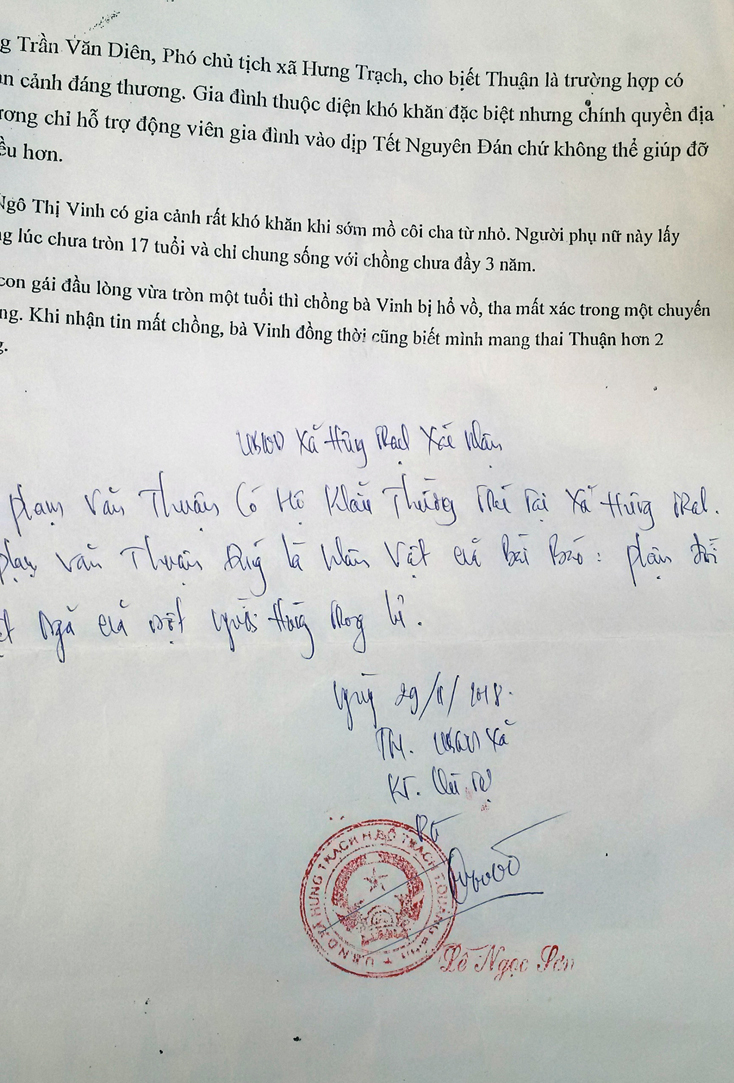 g Trần Văn Diên, Phó chủ tịch xã Hưng Trạch, cho biết Thuận là trường hợp có
n cảnh đáng thương. Gia đình thuộc diện khó khăn đặc biệt nhưng chính quyền địa
ương chỉ hỗ trợ động viên gia đình vào dịp Tết Nguyên Đán chứ không thể giúp đỡ
ều hơn.
Ngô Thị Vinh có gia cảnh rất khó khăn khi sớm mồ côi cha từ nhỏ. Người phụ nữ này lấy
ng lúc chưa tròn 17 tuổi và chỉ chung sống với chồng chưa đầy 3 năm.
con gái đầu lòng vừa tròn một tuổi thì chồng bà Vinh bị hổ vồ, tha mất xác trong một chuyến
ng. Khi nhận tin mất chồng, bà Vinh đồng thời cũng biết mình mang thai Thuận hơn 2
g.
UBND Xã Hưng Trạch Xác nhận
Phạm Văn Thuận Có Hộ Khẩu Thường Trú Tại Xã Hưng Trạch.
Phạm Văn Thuận Đúng là Nhân Vật của Bài Báo: phận đời
của một người
Ngày 29/ /2018.
TM. UBND Xã
KT. Chủ Tịch
U.B.N.D XÃ HƯNG TRẠCH H.BỐ TRẠCH T.QUẢNG BÌNH
Lê Ngọc Sơn